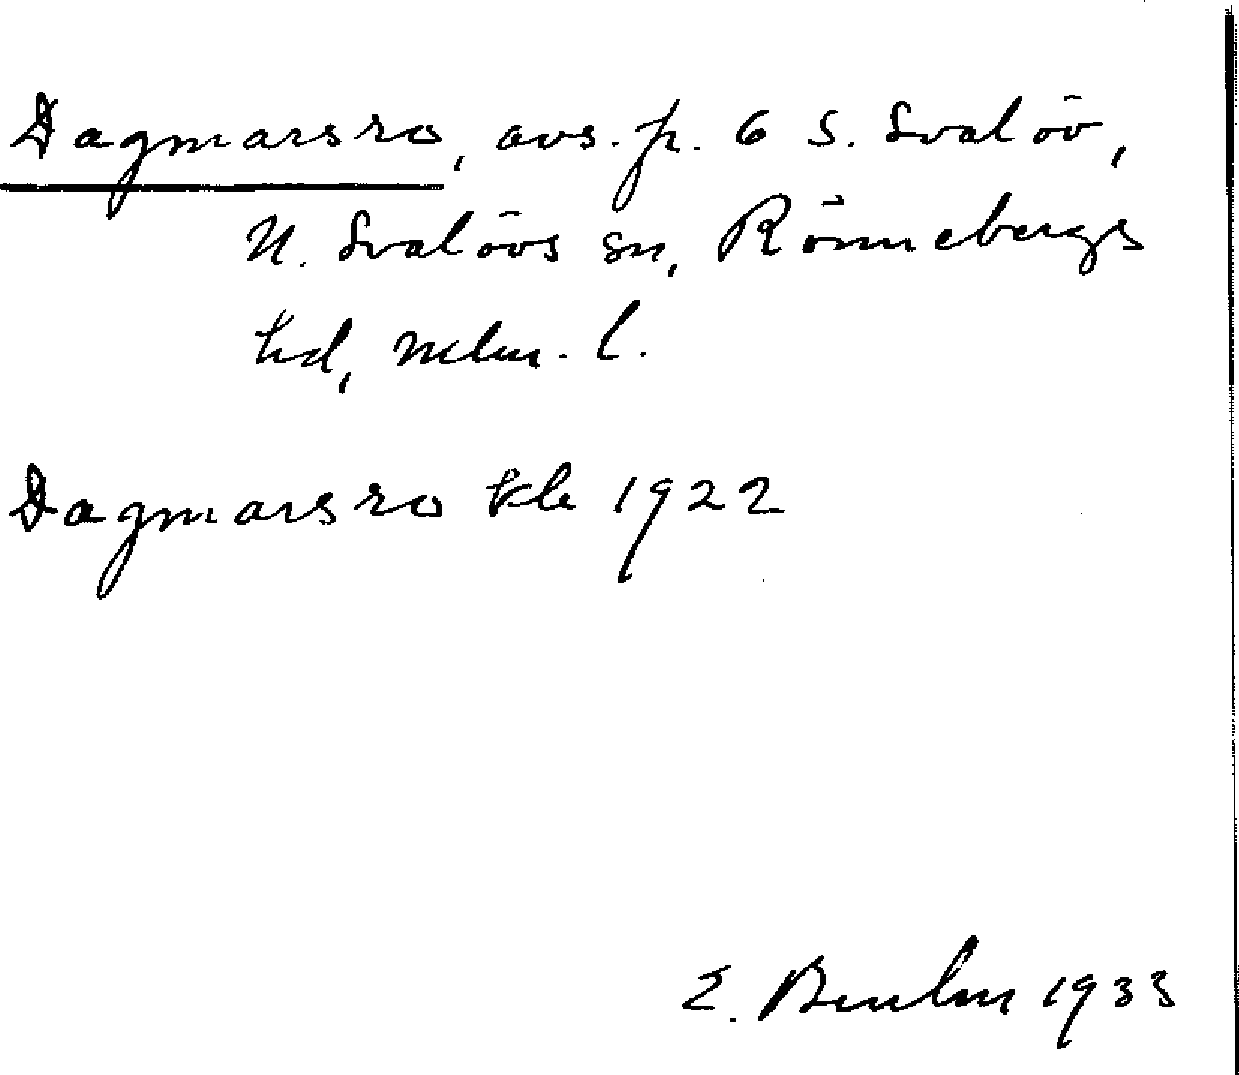 Dagmarsro, avs. p. 6 S. Svalöv,
N. Svalövs sn, Rönnebergs
hd, Mlm. l.
Dagmarsro Ek 1922
1933